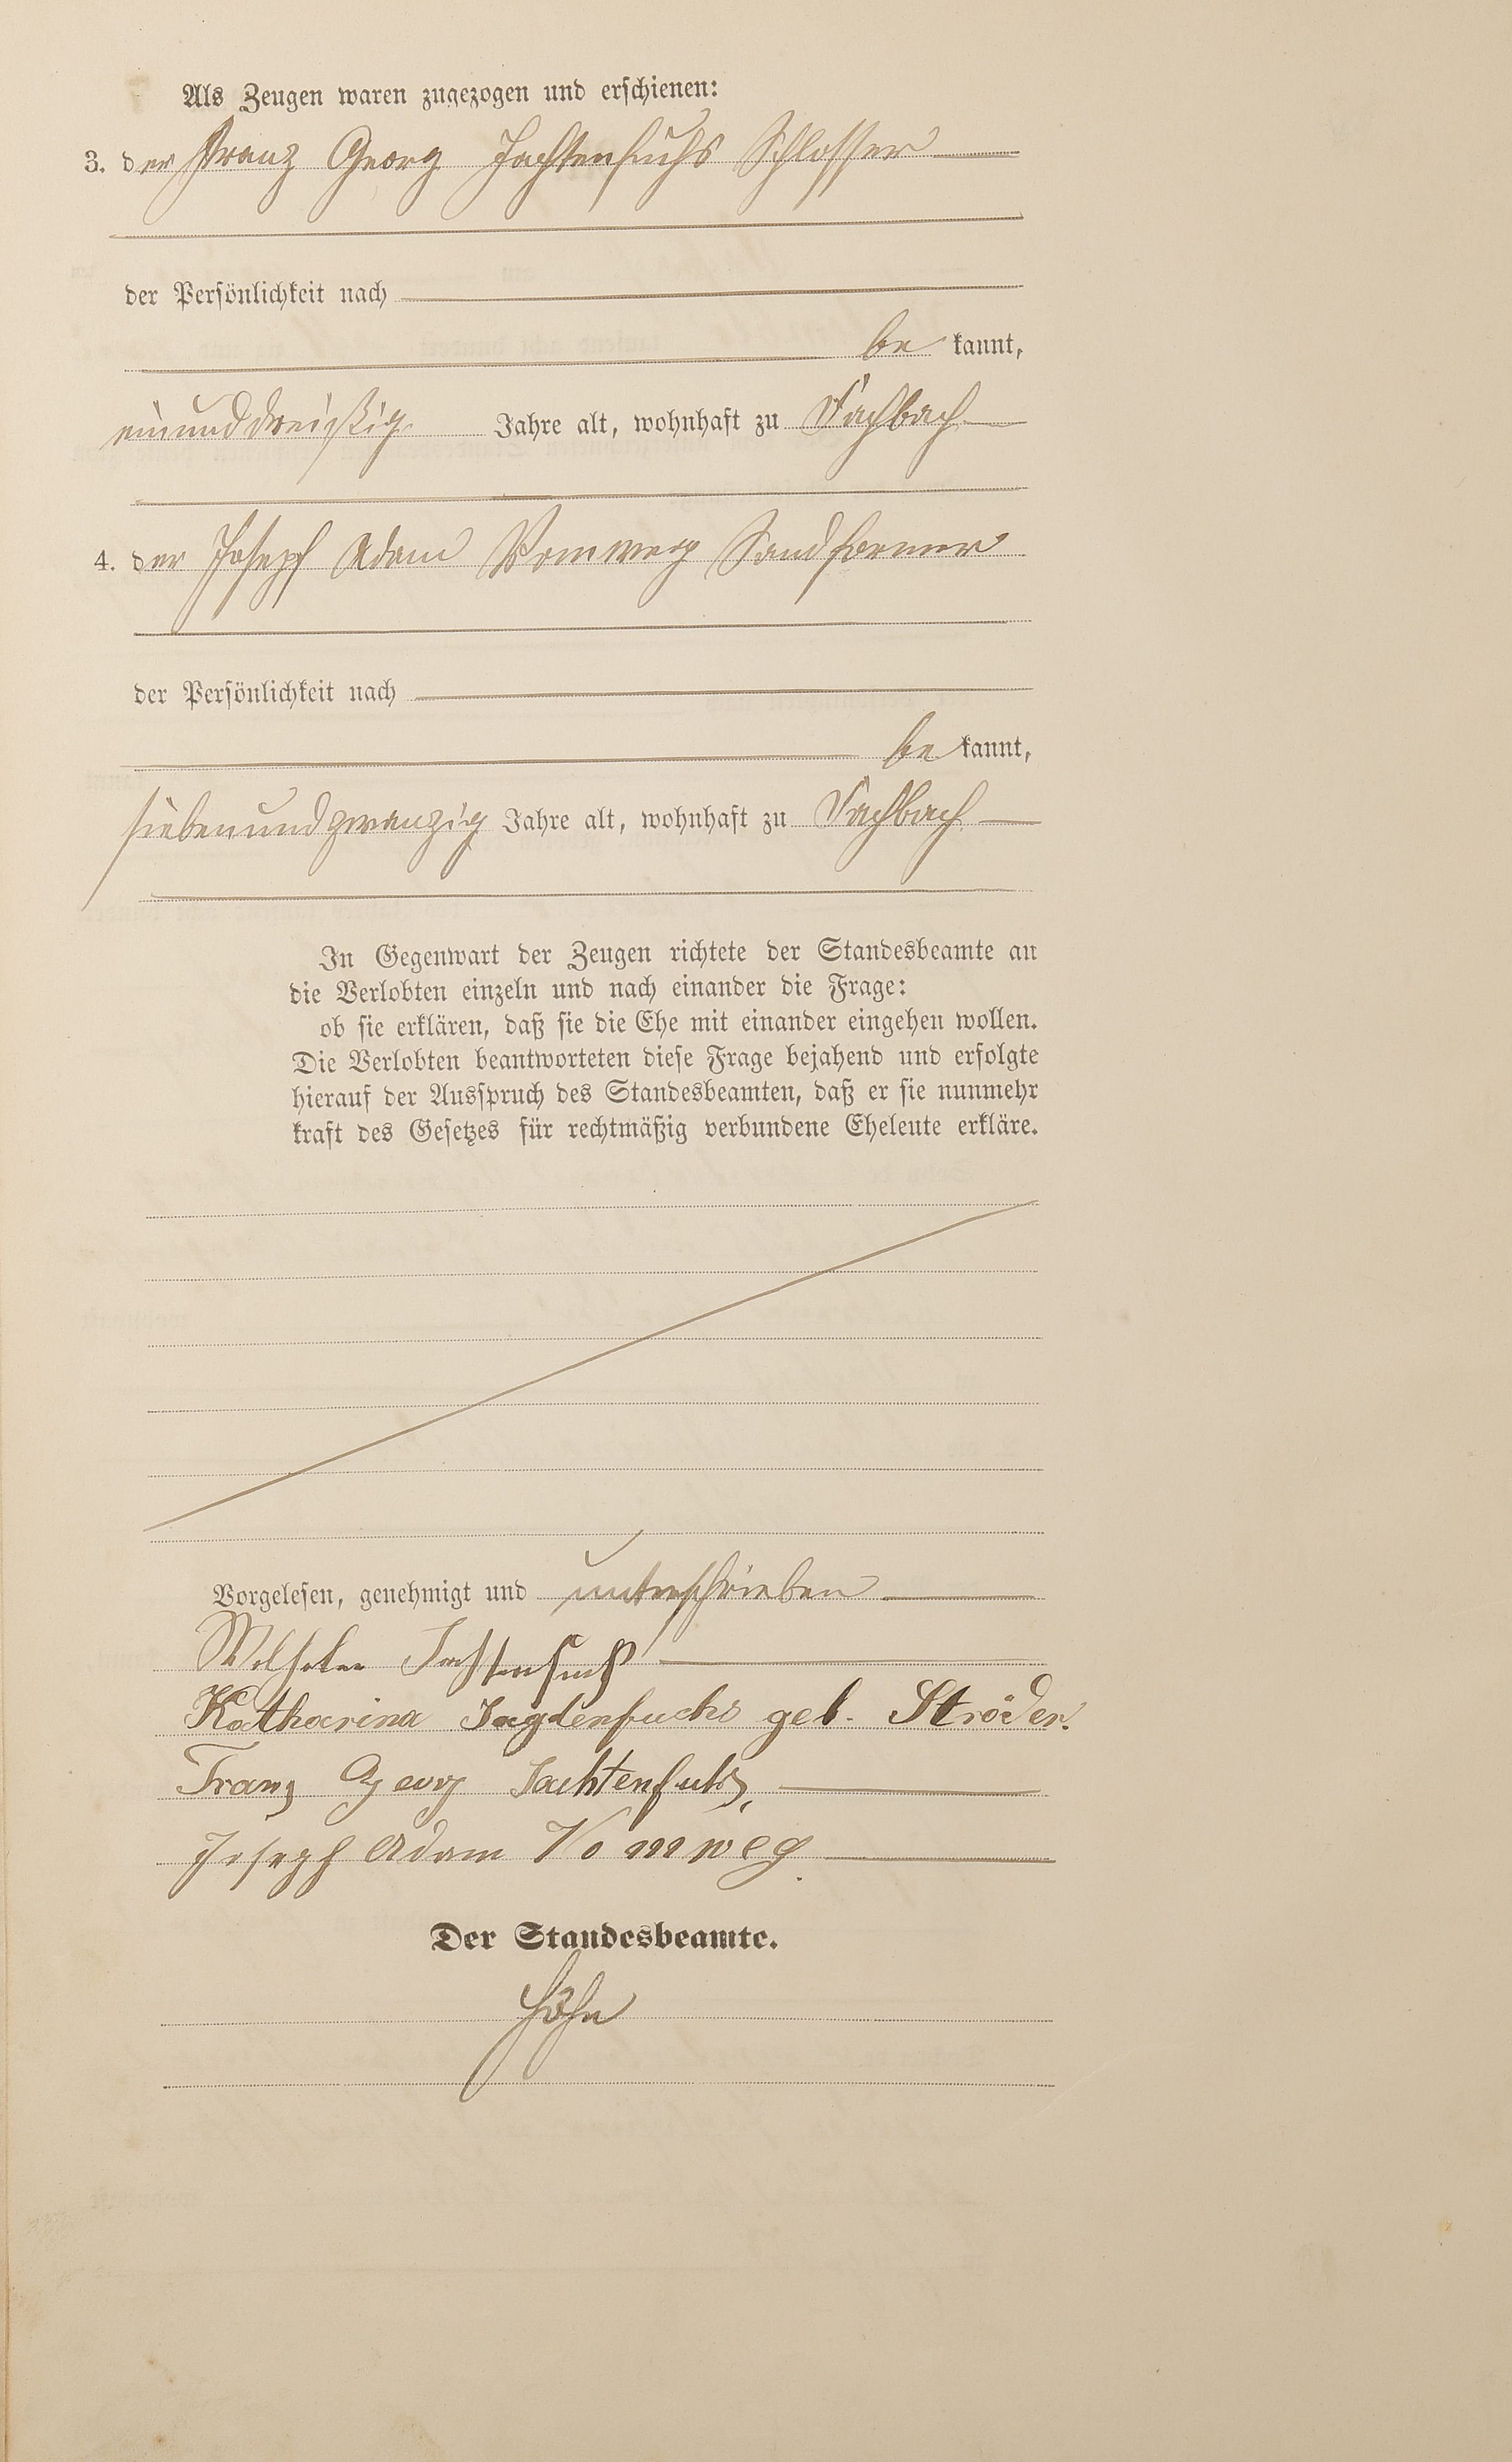 Als Zeugen waren zugezogen und erschienen:
3. der Franz Georg Jachtenfuchs Schlosser
der Persönlichkeit nach
be kannt,
einunddreißig Jahre alt, wohnhaft zu Fachbach
4. der Joseph Adam Vomweg Sandformer
der Persönlichkeit nach
be kannt,
siebenundzwanzig Jahre alt, wohnhaft zu Fachbach
In Gegenwart der Zeugen richtete der Standesbeamte an
die Verlobten einzeln und nach einander die Frage:
ob sie erklären, daß sie die Ehe mit einander eingehen wollen.
Die Verlobten beantworteten diese Frage bejahend und erfolgte
hierauf der Ausspruch des Standesbeamten, daß er sie nunmehr
kraft des Gesetzes für rechtmäßig verbundene Eheleute erkläre.
Vorgelesen, genehmigt und unterschrieben
Wilhelm Jachtenfuchs
Katharina Jagdenfuchs geb. Ströder.
Franz Georg Jachtenfuchs,
Joseph Adam Vomweg.
Der Standesbeamte.
Höhn